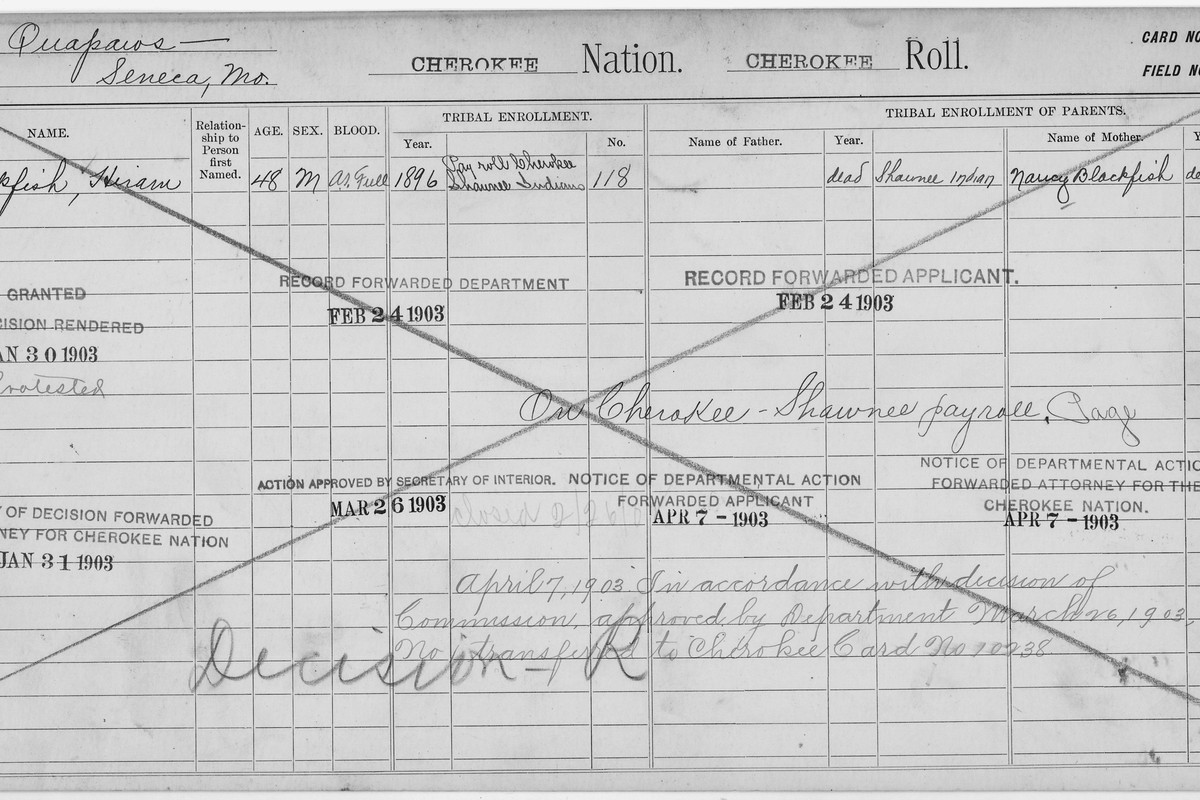 Quapaws —
Seneca, Mo.
CHEROKEE Nation. CHEROKEE Roll.
CARD NO
FIELD NO
NAME.
Relation-
ship to
Person
first
Named.
AGE.
SEX.
BLOOD.
TRIBAL ENROLLMENT.
Year.
No.
TRIBAL ENROLLMENT OF PARENTS.
Name of Father.
Year.
Name of Mother.
Y
kfish, Hiram 48 M Full 1896 Pay roll Cherokee
Shawnee Indians 118 dead Shawnee Indian Nancy Blackfish de
GRANTED
CISION RENDERED
AN 30 1903
Protested
RECORD FORWARDED DEPARTMENT
FEB 24 1903
RECORD FORWARDED APPLICANT.
FEB 24 1903
On Cherokee - Shawnee payroll, Page
ACTION APPROVED BY SECRETARY OF INTERIOR.
MAR 26 1903
NOTICE OF DEPARTMENTAL ACTION
FORWARDED APPLICANT
APR 7 - 1903
NOTICE OF DEPARTMENTAL ACTIO
FORWARDED ATTORNEY FOR THE
CHEROKEE NATION.
APR 7 - 1903
Y OF DECISION FORWARDED
NEY FOR CHEROKEE NATION
JAN 31 1903
April 7, 1903 In accordance with decision of
Commission, approved by Department March 26, 1903,
No 1 transferred to Cherokee Card No
Decision - R